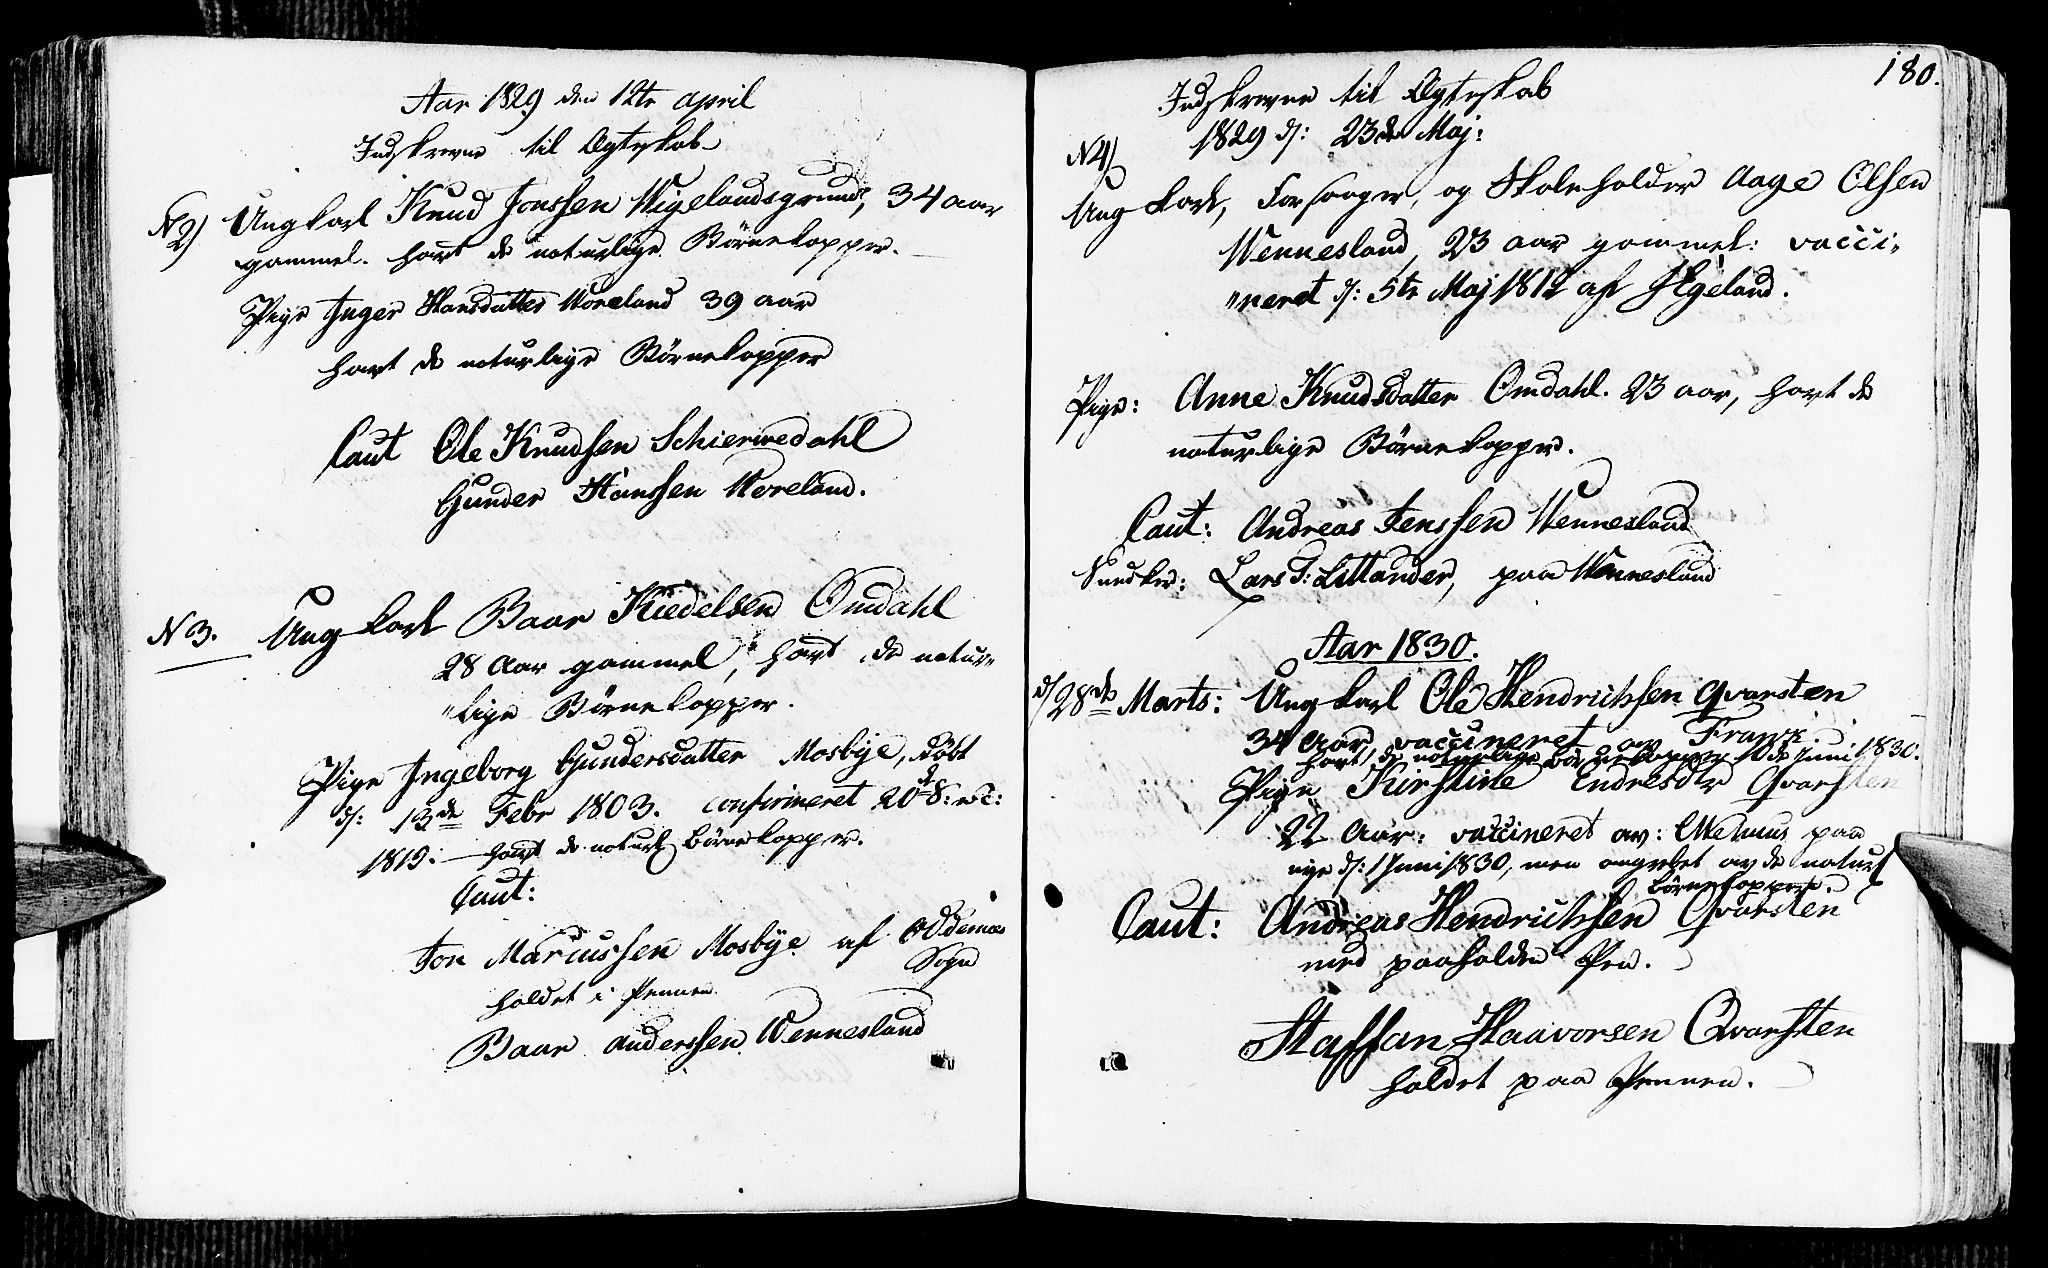 Aar 1829 den 12te April
Indskrevne til Ægteskab
N 2) Ungkarl Knud Jonssen Wigelandsgrund, 34 aar
gammel. havt de naturlige Børnekopper.
Pige Inger Hansdatter Moreland 39 aar
havt de naturlige Børnekopper
Caut Ole Knudsen Schierwedahl
Gunder Hanssen Moreland.
N 3. Ungkarl Baar Kiedelsen Omdahl
28 Aar gammel, havt de natur„
„lige Børnekopper.
Pige Ingeborg Gundersdatter Mosbye, døbt
d: 13de Febr 1803. confirmeret 20 8: Tr:
1819. havt de naturl Børnekopper.
Caut:
Jon Marcussen Mosbye af Oddernes
Sogn
holdet i Pennen
Baar Anderssen Wennesland
180.
Indskrevne til Ægteskab
1829 d: 23de Maj:
N 4)
Ungkarl, Forsanger, og Skoleholder Aage Olsen
Wennesland, 23 aar gammel: vacci„
„neret d: 5te Maj 1812 af Egeland.
Pige: Anne Knudsdatter Omdahl. 23 aar, havt de
naturlige Børnekopper.
Caut: Andreas Jenssen Wennesland
Lars T: Littander, paa Wennesland
Aar 1830.
d/28de Marts: Ungkarl Ole Hendrichsen Qvarsten
34 Aar, vaccineret av Frantz.
havt de naturlige Børnekopper 10de Juni 1830.
Pige Kirstine Endresdtr Qvarsten
22 Aar: vaccineret av: paa
nye d: 1 Juni 1830, men angrebet av de naturl
Børnekopper.
Caut: Andreas Hendrichsen Qvarsten
med paaholden Pen.
Staffan Haavorsen Qvarsten
holdet paa Pennen.